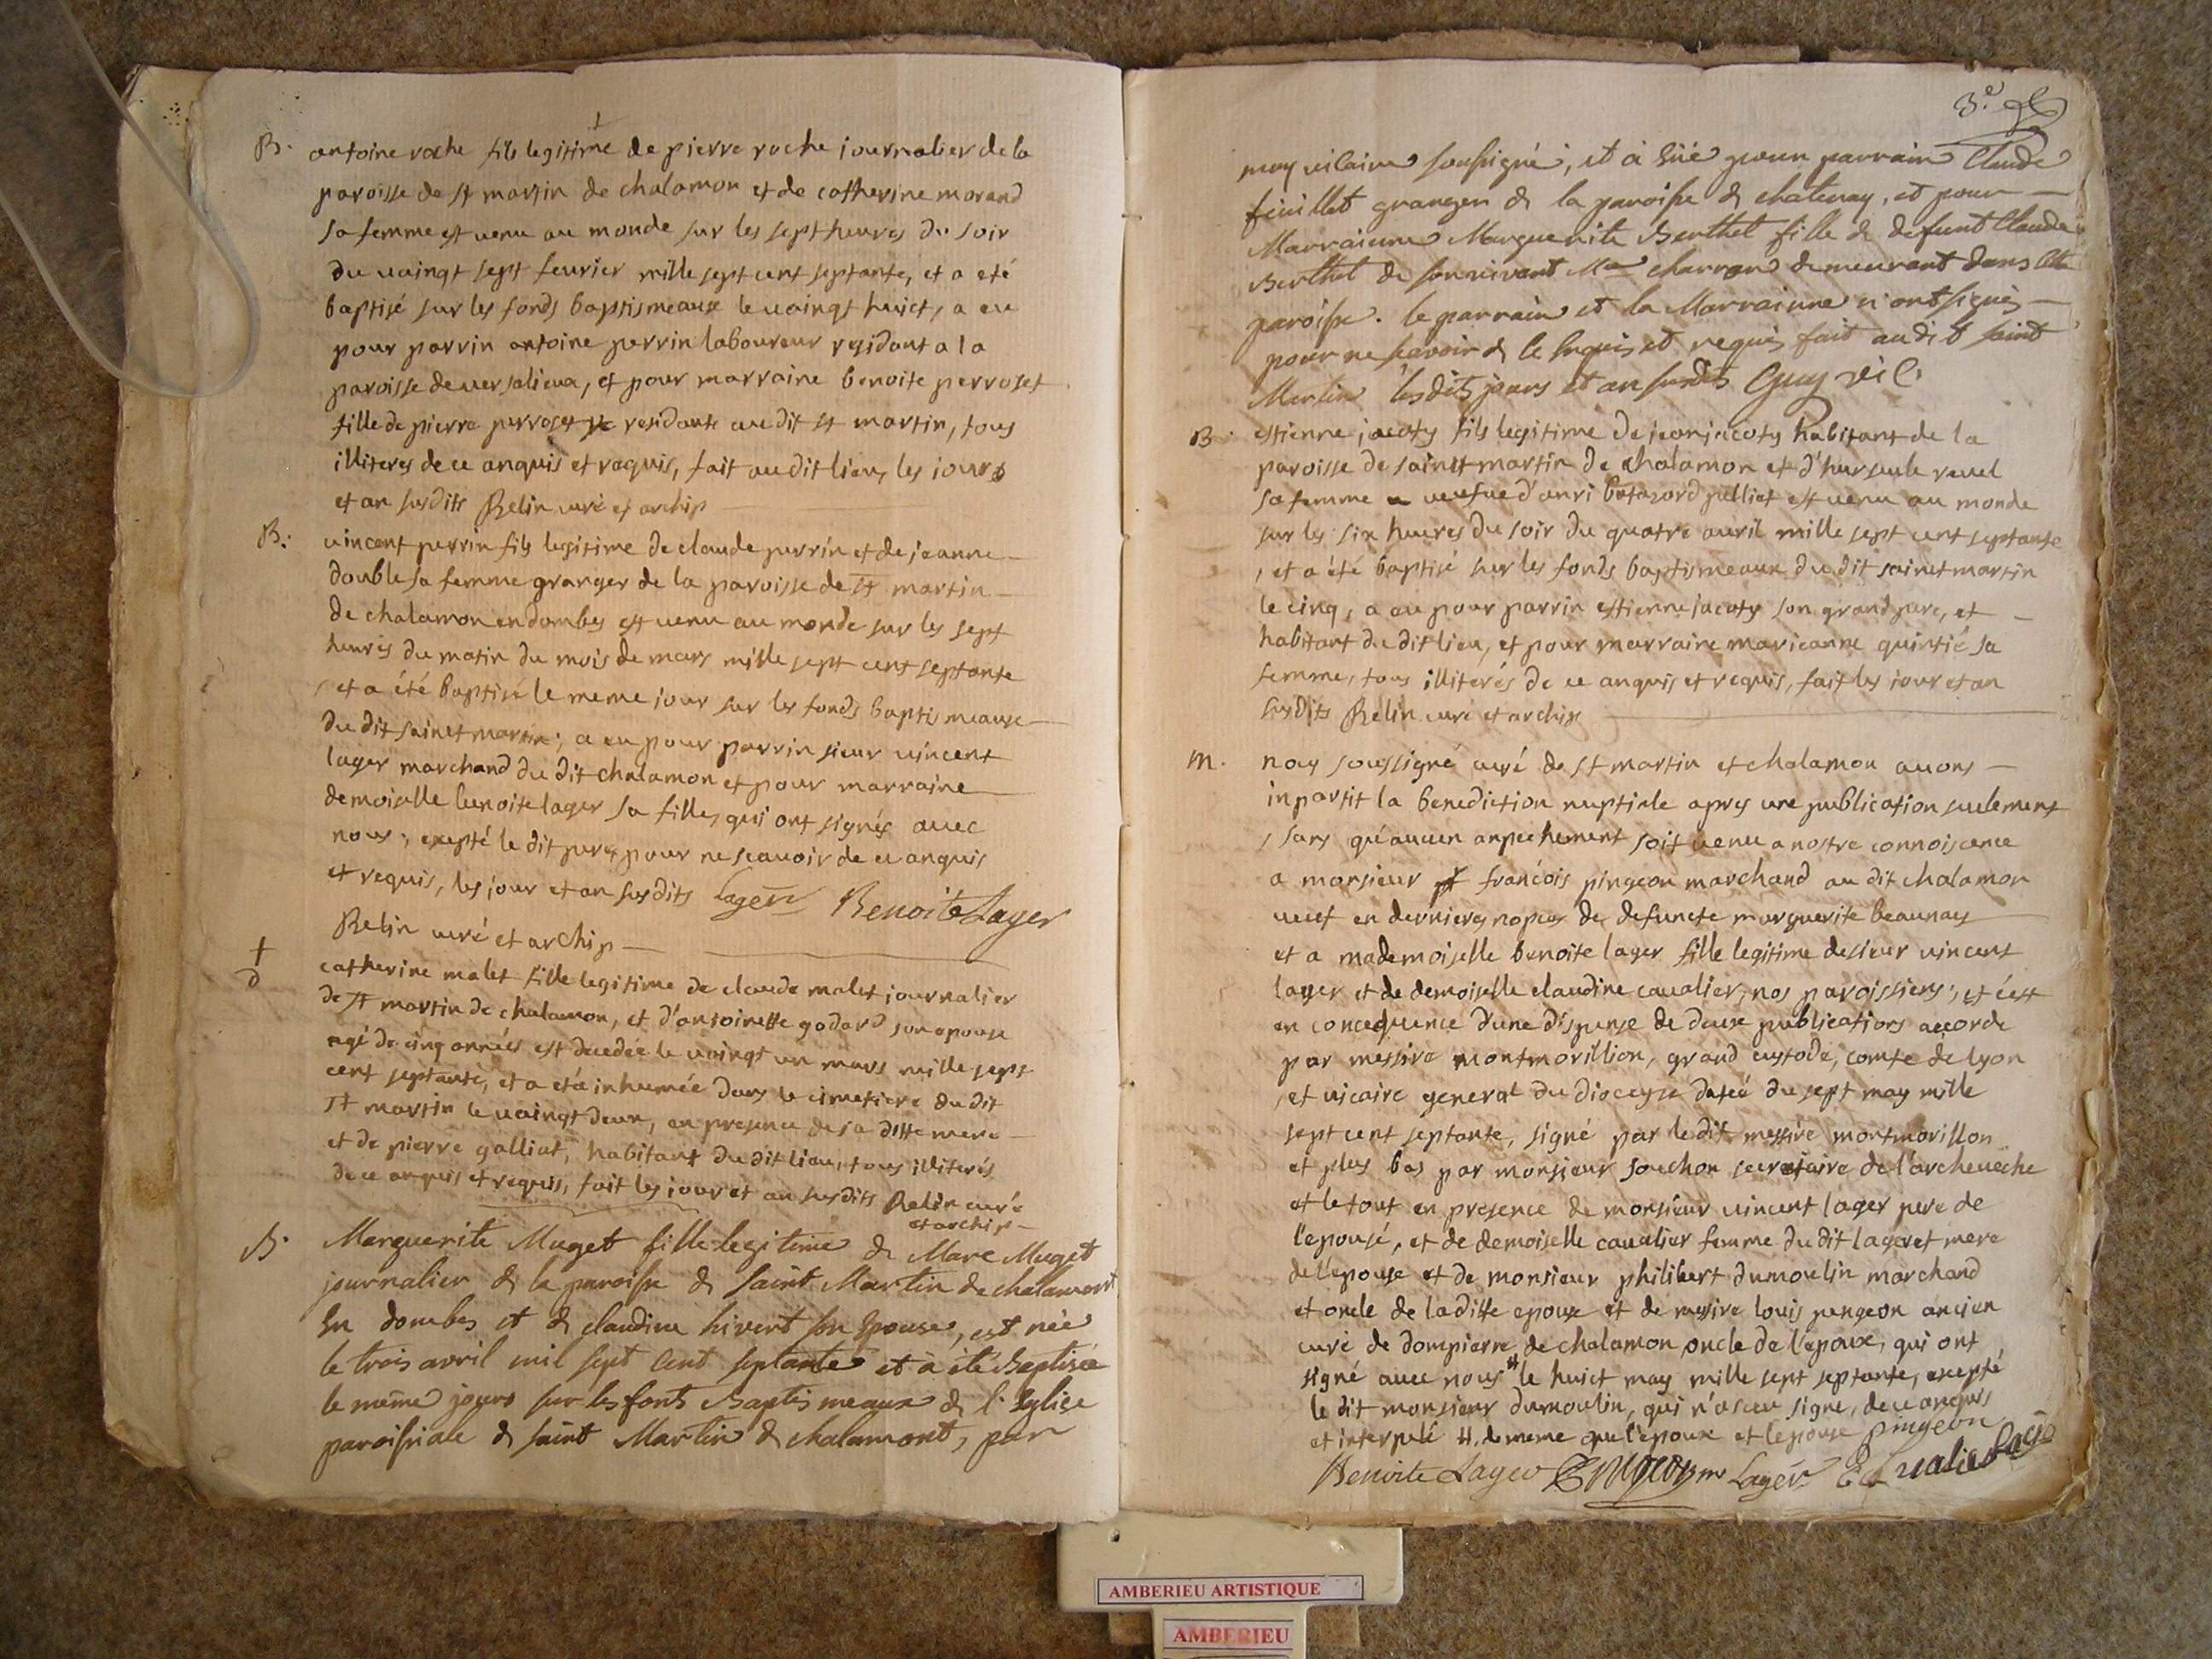 B. antoine roche fils legitime de pierre roche journalier de la
paroisse de st martin de chalamon et de catherine morand
sa femme est venu au monde sur les sept heures du soir
du vaingt sept feurier mille sept cent septante, et a eté
baptisé sur les fonds baptismeaux le vaingt huict, a eu
pour parrin antoine perrin laboureur residant a la
paroisse de versalieux, et pour marraine benoite perroset
fille de pierre perroset residante audit st martin, tous
illiteres de ce anquis et raquis, fait audit lieu, les jours
et an susdits Relin curé et archip
B. vincent perrin fils legitime de claude perrin et de jeanne
double sa femme granger de la paroisse de st martin
de chalamon en dombes est venu au monde sur les sept
heures du matin du mois de mars mille sept cent septante
, et a été baptisé le meme jour sur les fonds baptismeaux
du dit sainct martin ; a eu pour parrin sieur vincent
lager marchand du dit chalamon et pour marraine
demoiselle benoite lager sa fille, qui ont signés avec
nous ; exepté le dit pere, pour ne scauoir de ce anquis
et requis, les jour et an susdits Lager Benoite Lager
Relin curé et archip
†
d catherine malet fille legitime de claude malet journalier
de st martin de chalamon, et d'antoinette godard son epouse
agé de cinq années est decedée le vaingt un mars mille sept
cent septante, et a eté inhumée dans le cimetiere du dit
st martin le vaingt deux, en presence de sa ditte mere
et de pierre galliat, habitant du dit lieu, tous illiterés
de ce anquis et requis, fait les jour et an susdits Relin curé
et archip
B. Marguerite Muget fille legitime de Marc Muget
journalier de la paroisse de saint Martin de chalamont
En dombes et de claudine hivert son Epouse, est née
le trois avril mil sept Cent septante et a été Baptisée
le même jours sur les fonts Baptismeaux de l'Eglise
paroissiale de saint Martin de chalamont, par
3.e
moy vicaire soussigné, et a eüe pour parrain Claude
feuillet granger de la paroisse de chatenay, et pour
Marrainne Marguerite Berthet fille de defunt Claude
Berthet de son vivant Me charron demeurant dans cette
paroisse. le parrain et la Marrainne n'ont signés
pour ne scavoir de ce Enquis et requis fait audit saint
Martin les dits jours et an susdits Guy vic.
B. estienne jacoty fils legitime de jean jacoty habitant de la
paroisse de sainct martin de chalamon et d'hursule revel
sa femme veufue d'anri julliet est venu au monde
sur les six heures du soir du quatre auril mille sept cent septante
, et a été baptisé sur les fonds baptismeaux du dit sainct martin
le cinq, a eu pour parrin estienne jacoty son grand pere, et
habitant du dit lieu, et pour marraine marieanne quintié sa
femme, tous illiterés de ce anquis et requis, fait les jour et an
susdits Relin curé et archip
M. nous soussigné curé de st martin et chalamon auons
impartit la benediction nuptiale apres une publication seulement
, sans qu'aucun anpechement soit venu a nostre connoiscence
a monsieur francois pingeon marchand au dit chalamon
veuf en dernieres nopces de defuncte marguerite beaunay
et a mademoiselle benoite lager fille legitime de sieur vincent
lager et de demoiselle claudine caualier, nos paroissiens ; et c'est
en concequence d'une dispense de deux publications accorde
par messire montmorillion, grand custode, comte de lyon
, et vicaire general du diocesse dateé du sept may mille
sept cent septante, signé par le dit messire montmorillon
et plus bas par monsieur souchon secretaire de l'archeueche
et le tout en presence de monsieur vincent lager pere de
l'epouse, et de demoiselle caualier femme du dit lager et mere
de l'epouse et de monsieur philibert dumoulin marchand
et oncle de la ditte epouse et de messire louis pingeon ancien
curé de dompierre de chalamon oncle de l'epoux, qui ont
signé auec nous # le huict may mille sept septante, excepté
le dit monsieur dumoulin, qui n'a sceu signe, de ce anquis
et interpelé #. de meme que l'epoux et l'epouse pingeon
Benoite Lager Pingeon Lager
AMBERIEU ARTISTIQUE
AMBERIEU